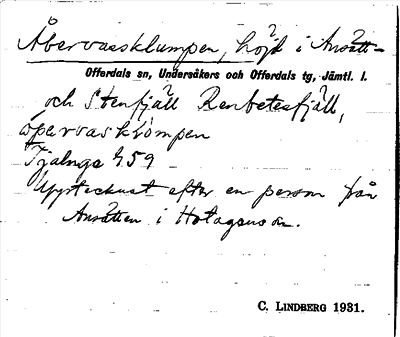 Åbervassklumpen, höjd i Ansätt-
Offerdals sn, Undersåkers och Offerdals tg, Jämtl. l.
och Stenfjäll Renbetesfjäll,
åpervasklompen
459
Upptecknat efter en person från
Ansätten i Hotagens sn.
C. LINDBERG 1931.